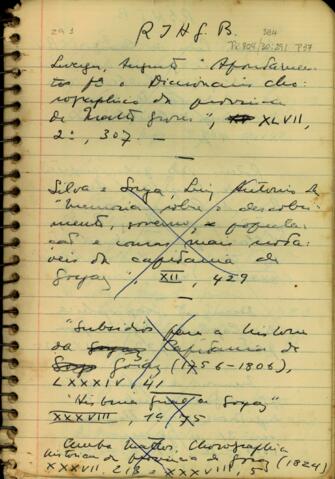 R I H G. B.
Leverger, Augusto "Apontamen-
tos pª o Diccionario Cho-
rographico da provincia
de Matto Grosso", XLVII,
2ª, 307. —
Silva e Souza, Luiz Antonio da
"Memoria sobre o descobri-
mento, governo, popula-
ção e cousas mais nota-
veis da capitania de
Goyaz", XII, 429
"Subsidios para a historia
da Goyaz Capitania de
Goiáz (1756-1806),
LXXXIV, 41
"Historia Goyaz"
XXXVIII, 1ª, 75
Cunha Mattos, Chorographia
historica da provincia de Goyaz (1824)
XXXVII, 213 e XXXVIII, 5